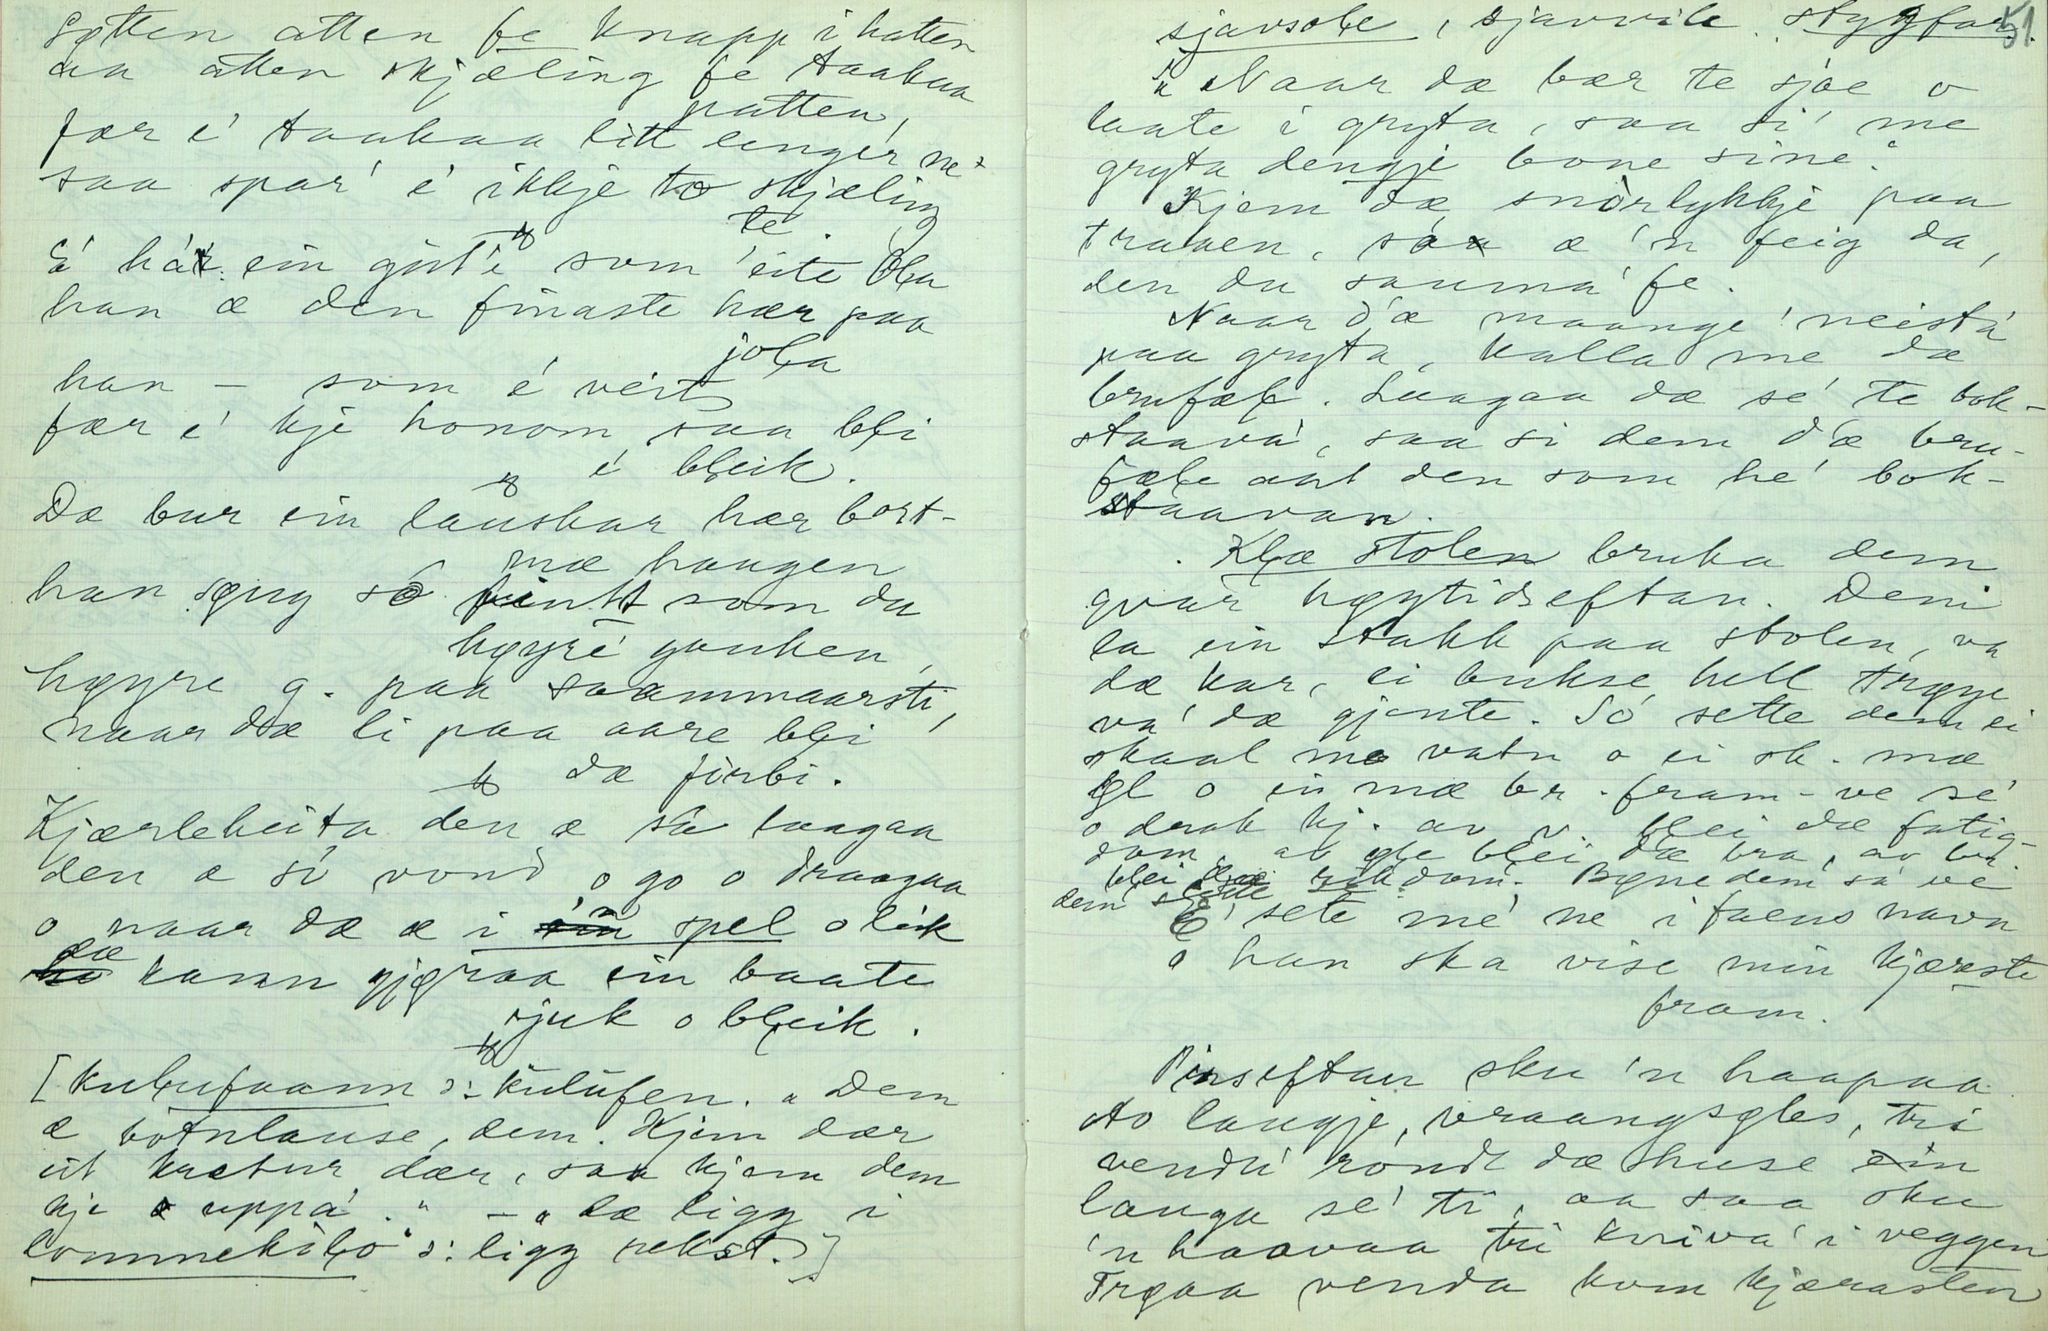 Søtten atten fe knapp i hatten
aa atten skjæling fe taakaa
patten,
fær é taakaa litt lenger ne
saa spar' é ikkje to skjæling
te.
É há ein gut'e som eite Ola
han æ den finaste hær paa
jola
han – som é veit
fær é kje honom saa bli
é bleik.
Dæ bur ein lauskar hær bort-
mæ haugen
han syng só fint som du
høyre gauken,
høyre g. paa saammaarsti,
naar dæ li paa aare bli
dæ firbi.
Kjærleheita den æ så laagaa
den æ só vond o go o draagaa
o naar dæ æ i spel o leik
dæ kann gjøraa ein baate
sjuk o bleik.
[kulufaann ɔ: kulufen. "Dem
æ botnlause, dem. Kjem dær
ut krætur dær, saa kjem dem
kje uppá." – "dæ ligg i
lommekólo" ɔ: ligg rekst.]
sjavsole, sjavvile. styggfar. 51
" Naar dæ bær te sjøe o
laate i gryta, saa si' me
gryta dengje bone sine."
Kjem dæ snórlykkje paa
traaen, saa æ 'n feig da,
den du sauma' fe.
Naar d'æ maange neistá
paa gryta, kalla me dæ
brufæle. Laagaa dæ sé te bok-
staavá, saa si dem d'æ bru-
fæle aat den som hé bok-
staavan.
Klæ stolen bruka dem
qvar høytidseftan. Dem
la ein stakk paa stolen, va
dæ kar, ei bukse hell trøye
va' dæ gjente. Só sette dem ei
skaal mæ vatn o ei sk. mæ
øl o ein mæ br. fram-ve sé
o drak kj. av v. blei dæ fatig-
dom, av øle blei dæ bra, av br.
blei dæ rikdom. Bøne dem sa ve
dem
É sete mé ne i faens navn
o han ska vise min kjæreste
fram.
Pinseftan sku 'n haapaa
to laugje, vraangsøles, tri
vendu rondt dæ huse ein
lauga sé ti, aa saa sku
'n haavaa tri knivá i veggen
Trøaa venda kom kjærasten